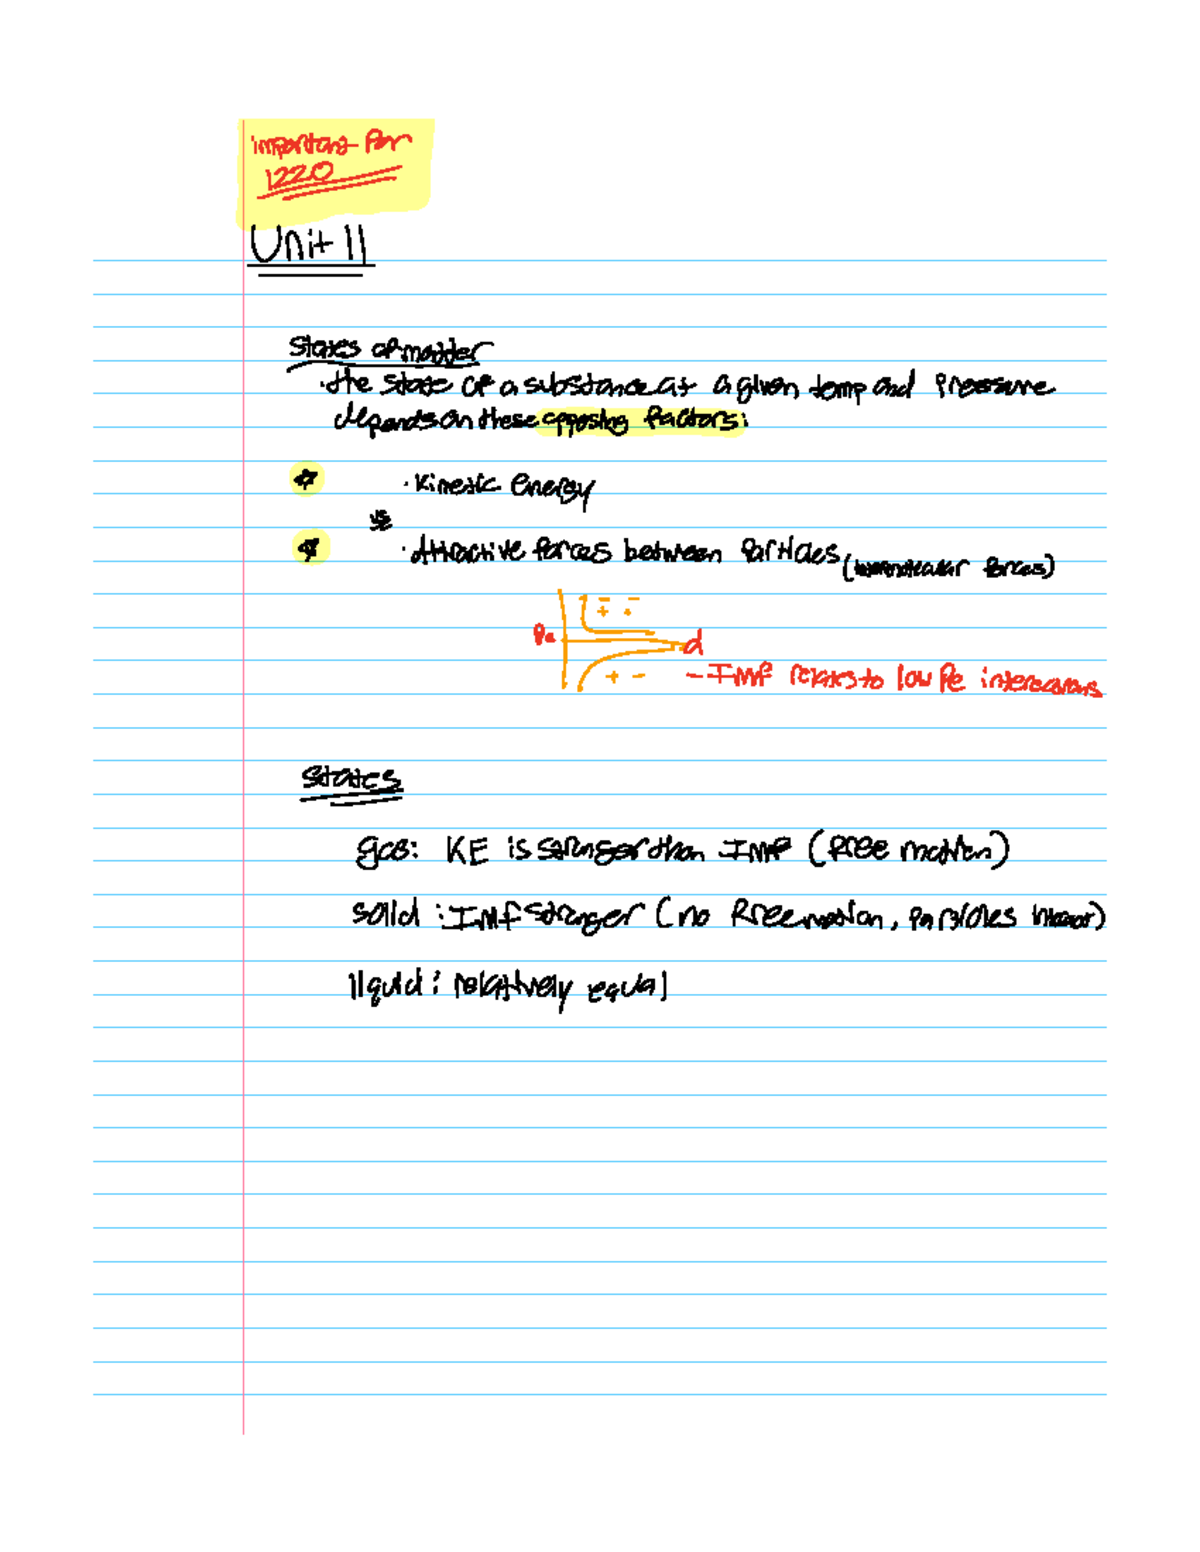 important for
1220
Unit 11
States of matter
· the state of a substance at a given temp and pressure
depends on these opposing factors:
· Kinetic energy
vs
· Attractive forces between particles (intermolecular forces)
- - 
+ +
Pe
d
+ -
- IMF relates to low Pe interactions
States
gas: KE is stronger than IMF (free motion)
solid: IMF stronger (no free motion, particles interact)
liquid: relatively equal